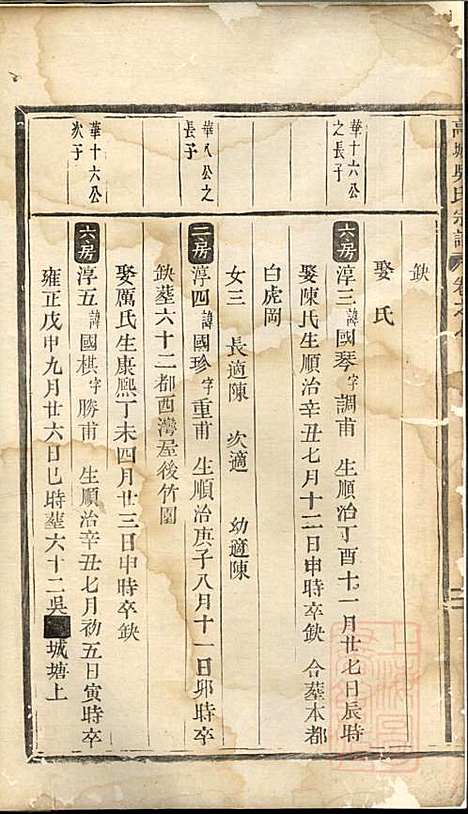 吳氏宗譜
缺
娶氏
華十六公
之長子
六房 淳三 諱 國琴 字 調甫 生順治丁酉十一月廿七日辰時
娶陳氏生順治辛丑七月十二日申時卒缺 合葬本都
白虎岡
女三 長適陳 次適 幼適陳
華八公之
長子
二房 淳四 諱 國珍 字 重甫 生順治庚子八月十一日卯時卒
缺葬六十二都西灣屋後竹園
娶厲氏生康熙丁未四月廿三日申時卒缺
華十六公
次子
六房 淳五 諱 國棋 字 勝甫 生順治辛丑七月初五日寅時卒
雍正戊申九月廿六日巳時葬六十二吳城塘上